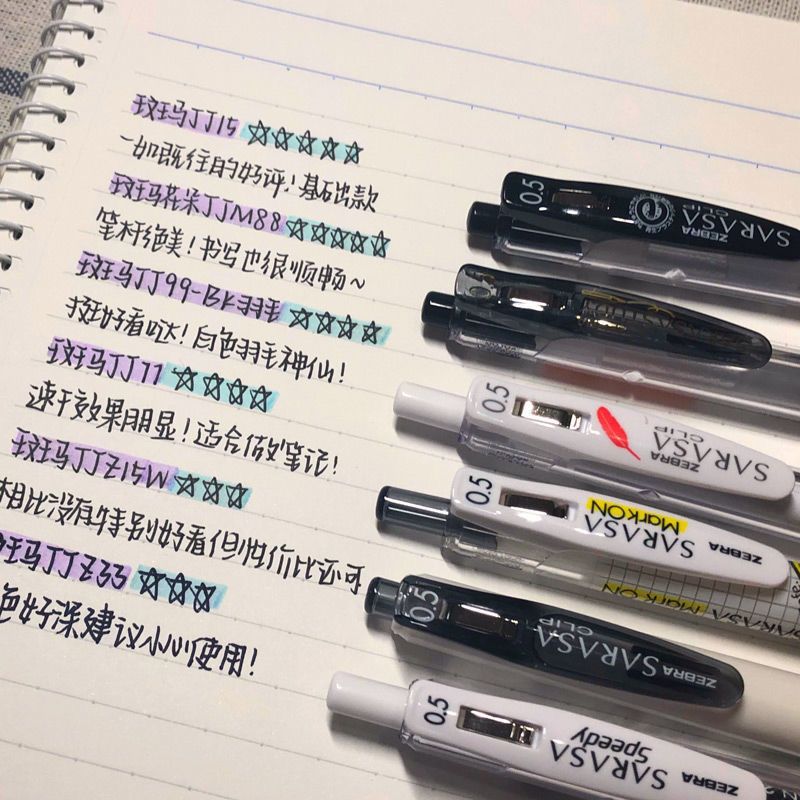 斑马JJ15 ☆☆☆☆☆
一如既往的好评！基础出款
斑马花朵JJM88 ☆☆☆☆☆
笔杆绝美！书写也很顺畅~
斑马JJ99-BK羽毛 ☆☆☆☆
挺好看哒！白色羽毛神仙！
斑马JJ77 ☆☆☆☆
速干效果明显！适合做笔记！
斑马JJZ15W ☆☆☆
相比没有特别好看但性价比还可
斑马JJZ33 ☆☆☆
色好深建议小心使用！
0.5
ZEBRA
SARASA
CLIP
0.5
ZEBRA
SARASA
CLIP
0.5
ZEBRA
SARASA
Mark ON
SARASA Mark ON
0.5
ZEBRA
SARASA
CLIP
0.5
ZEBRA
SARASA
Speedy